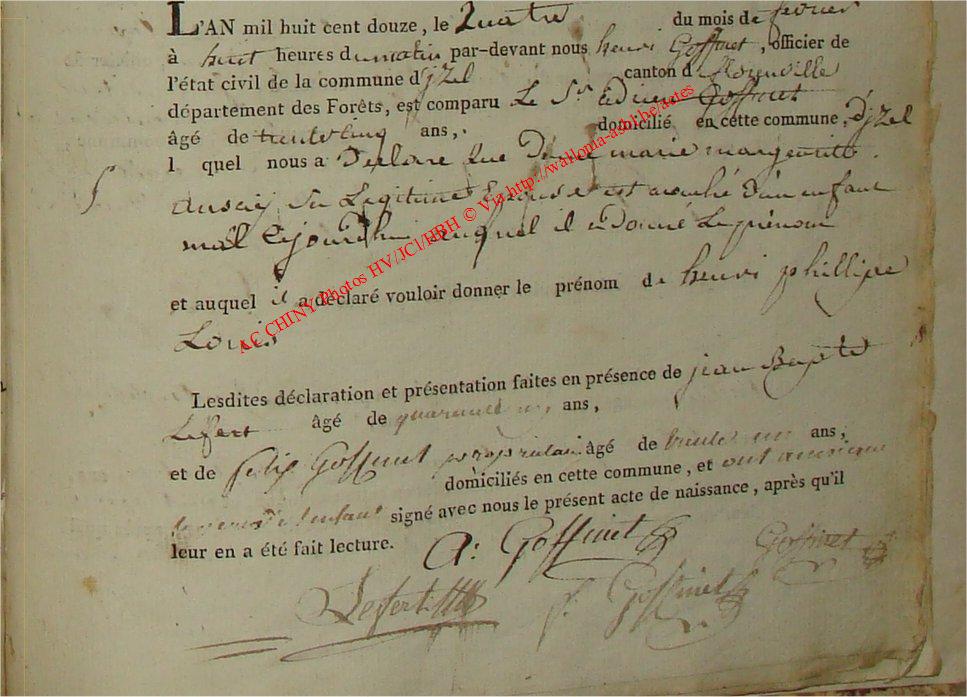 L'AN mil huit cent douze, le Quatre du mois de fevrier
à huit heures du matin par-devant nous henri Goffinet, officier de
l'état civil de la commune d'jzel canton d
département des Forêts, est comparu Le Sr. Goffinet
âgé de trente cinq ans, domicilié en cette commune, D'jzel
l quel nous a Declaré Que Dame marie marguerite
Legitime Epouse est acouché d'un enfant
mâl auquel il a Donné Le prénom
et auquel il a déclaré vouloir donner le prénom de henri phillipe
Louis
Lesdites déclaration et présentation faites en présence de jean Bapte
Lefert âgé de quarante ans,
et de felix Goffinet propriétaire âgé de trente un ans,
domiciliés en cette commune, et ont
le pere de l'enfant signé avec nous le présent acte de naissance, après qu'il
leur en a été fait lecture.
A: Goffinet
Goffinet
Lefert
f. Goffinet
AC CHINY Photos HV/JCl/HBH © Via http://wallonia-asbl.be/actes